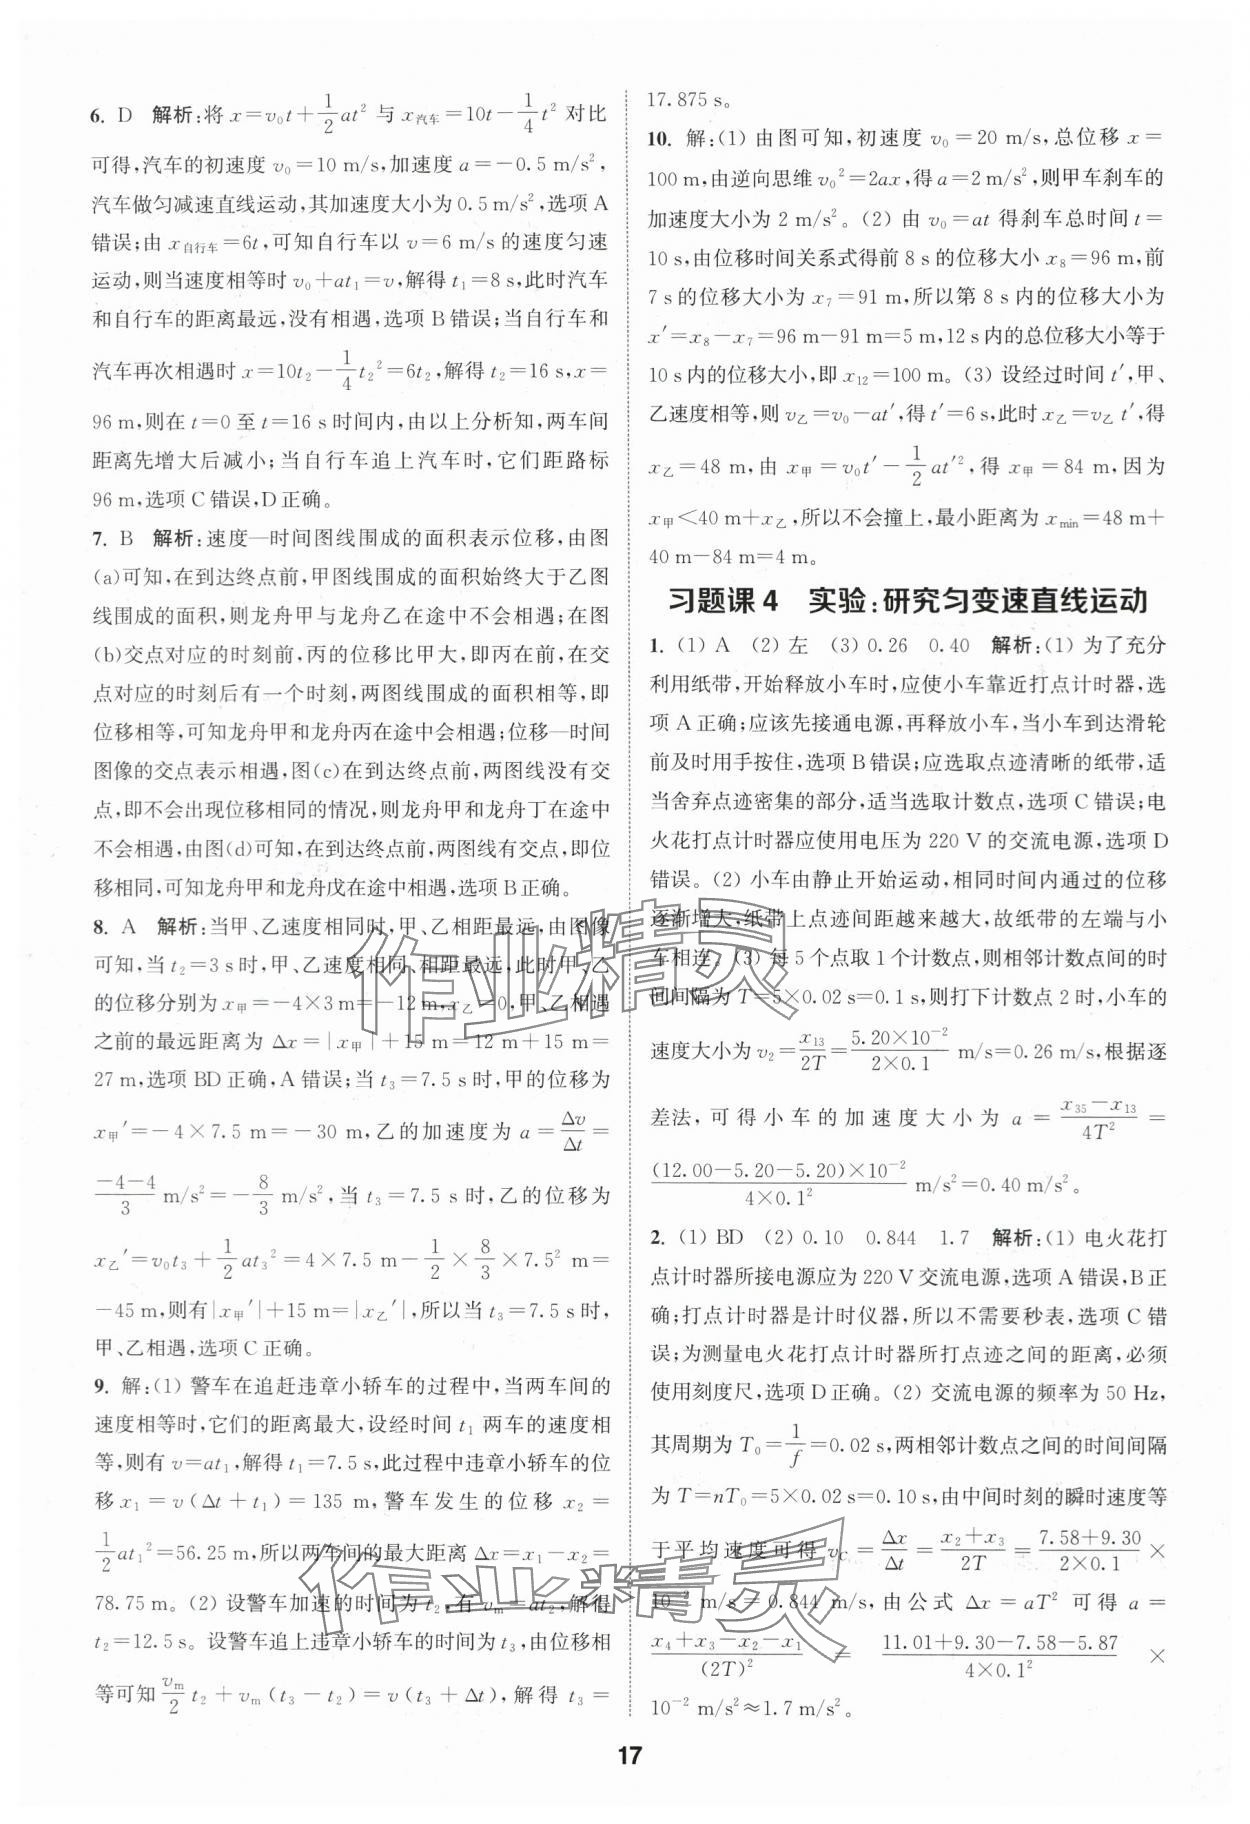 6. D 解析:将 x=v₀t+1/2at² 与 x汽车=10t−1/4t² 对比
可得,汽车的初速度 v₀=10 m/s,加速度 a=−0.5 m/s²,
汽车做匀减速直线运动,其加速度大小为 0.5 m/s²,选项 A
错误;由 x自行车=6t,可知自行车以 v=6 m/s 的速度匀速
运动,则当速度相等时 v₀+at₁=v,解得 t₁=8 s,此时汽车
和自行车的距离最远,没有相遇,选项 B 错误;当自行车和
汽车再次相遇时 x=10t₂−1/4t₂²=6t₂,解得 t₂=16 s,x=
96 m,则在 t=0 至 t=16 s 时间内,由以上分析知,两车间
距离先增大后减小;当自行车追上汽车时,它们距路标
96 m,选项 C 错误,D 正确。
7. B 解析:速度—时间图线围成的面积表示位移,由图
(a)可知,在到达终点前,甲图线围成的面积始终大于乙图
线围成的面积,则龙舟甲与龙舟乙在途中不会相遇;在图
(b)交点对应的时刻前,丙的位移比甲大,即丙在前,在交
点对应的时刻后有一个时刻,两图线围成的面积相等,即
位移相等,可知龙舟甲和龙舟丙在途中会相遇;位移—时间
图像的交点表示相遇,图(c)在到达终点前,两图线没有交
点,即不会出现位移相同的情况,则龙舟甲和龙舟丁在途中
不会相遇,由图(d)可知,在到达终点前,两图线有交点,即位
移相同,可知龙舟甲和龙舟戊在途中相遇,选项 B 正确。
8. A 解析:当甲、乙速度相同时,甲、乙相距最远,由图像
可知,当 t₂=3 s 时,甲、乙速度相同、相距最远,此时甲、乙
的位移分别为 x甲=−4×3 m=−12 m,x乙=0,甲、乙相遇
之前的最远距离为 Δx=|x甲|+15 m=12 m+15 m=
27 m,选项 BD 正确,A 错误;当 t₃=7.5 s 时,甲的位移为
x甲′=−4×7.5 m=−30 m,乙的加速度为 a=Δv/Δt=
(−4−4)/3 m/s²=−8/3 m/s²,当 t₃=7.5 s 时,乙的位移为
x乙′=v₀t₃+1/2at₃²=4×7.5 m−1/2×8/3×7.5² m=
−45 m,则有|x甲′|+15 m=|x乙′|,所以当 t₃=7.5 s 时,
甲、乙相遇,选项 C 正确。
9. 解:(1) 警车在追赶违章小轿车的过程中,当两车间的
速度相等时,它们的距离最大,设经时间 t₁ 两车的速度相
等,则有 v=at₁,解得 t₁=7.5 s,此过程中违章小轿车的位
移 x₁=v(Δt+t₁)=135 m,警车发生的位移 x₂=
1/2at₁²=56.25 m,所以两车间的最大距离 Δx=x₁−x₂=
78.75 m。(2) 设警车加速的时间为 t₂,有 vₘ=at₂,解得
t₂=12.5 s。设警车追上违章小轿车的时间为 t₃,由位移相
等可知 vₘ/2 t₂+vₘ(t₃−t₂)=v(t₃+Δt),解得 t₃=
17.875 s。
10. 解:(1) 由图可知,初速度 v₀=20 m/s,总位移 x=
100 m,由逆向思维 v₀²=2ax,得 a=2 m/s²,则甲车刹车的
加速度大小为 2 m/s²。(2) 由 v₀=at 得刹车总时间 t=
10 s,由位移时间关系式得前 8 s 的位移大小 x₈=96 m,前
7 s 的位移大小为 x₇=91 m,所以第 8 s 内的位移大小为
x′=x₈−x₇=96 m−91 m=5 m,12 s 内的总位移大小等于
10 s 内的位移大小,即 x₁₂=100 m。(3) 设经过时间 t′,甲、
乙速度相等,则 v乙=v₀−at′,得 t′=6 s,此时 x乙=v乙 t′,得
x乙=48 m,由 x甲=v₀t′−1/2at′²,得 x甲=84 m,因为
x甲<40 m+x乙,所以不会撞上,最小距离为 xmin=48 m+
40 m−84 m=4 m。
习题课 4 实验:研究匀变速直线运动
1. (1) A (2) 左 (3) 0.26 0.40 解析:(1) 为了充分
利用纸带,开始释放小车时,应使小车靠近打点计时器,选
项 A 正确;应该先接通电源,再释放小车,当小车到达滑轮
前及时用手按住,选项 B 错误;应选取点迹清晰的纸带,适
当舍弃点迹密集的部分,适当选取计数点,选项 C 错误;电
火花打点计时器应使用电压为 220 V 的交流电源,选项 D
错误。(2) 小车由静止开始运动,相同时间内通过的位移
逐渐增大,纸带上点迹间距越来越大,故纸带的左端与小
车相连。(3) 每 5 个点取 1 个计数点,则相邻计数点间的时
间间隔为 T=5×0.02 s=0.1 s,则打下计数点 2 时,小车的
速度大小为 v₂=x₁₃/2T=(5.20×10⁻²)/(2×0.1) m/s=0.26 m/s,根据逐
差法,可得小车的加速度大小为 a=(x₃₅−x₁₃)/4T²=
((12.00−5.20−5.20)×10⁻²)/(4×0.1²) m/s²=0.40 m/s²。
2. (1) BD (2) 0.10 0.844 1.7 解析:(1) 电火花打
点计时器所接电源应为 220 V 交流电源,选项 A 错误,B 正
确;打点计时器是计时仪器,所以不需要秒表,选项 C 错
误;为测量电火花打点计时器所打点迹之间的距离,必须
使用刻度尺,选项 D 正确。(2) 交流电源的频率为 50 Hz,
其周期为 T₀=1/f=0.02 s,两相邻计数点之间的时间间隔
为 T=nT₀=5×0.02 s=0.10 s,由中间时刻的瞬时速度等
于平均速度可得 vC=Δx/Δt=(x₂+x₃)/2T=(7.58+9.30)/(2×0.1)×
10⁻² m/s=0.844 m/s,由公式 Δx=aT² 可得 a=
(x₄+x₃−x₂−x₁)/(2T)²=(11.01+9.30−7.58−5.87)/(4×0.1²)×
10⁻² m/s²≈1.7 m/s²。
作业精灵
作业精灵
17